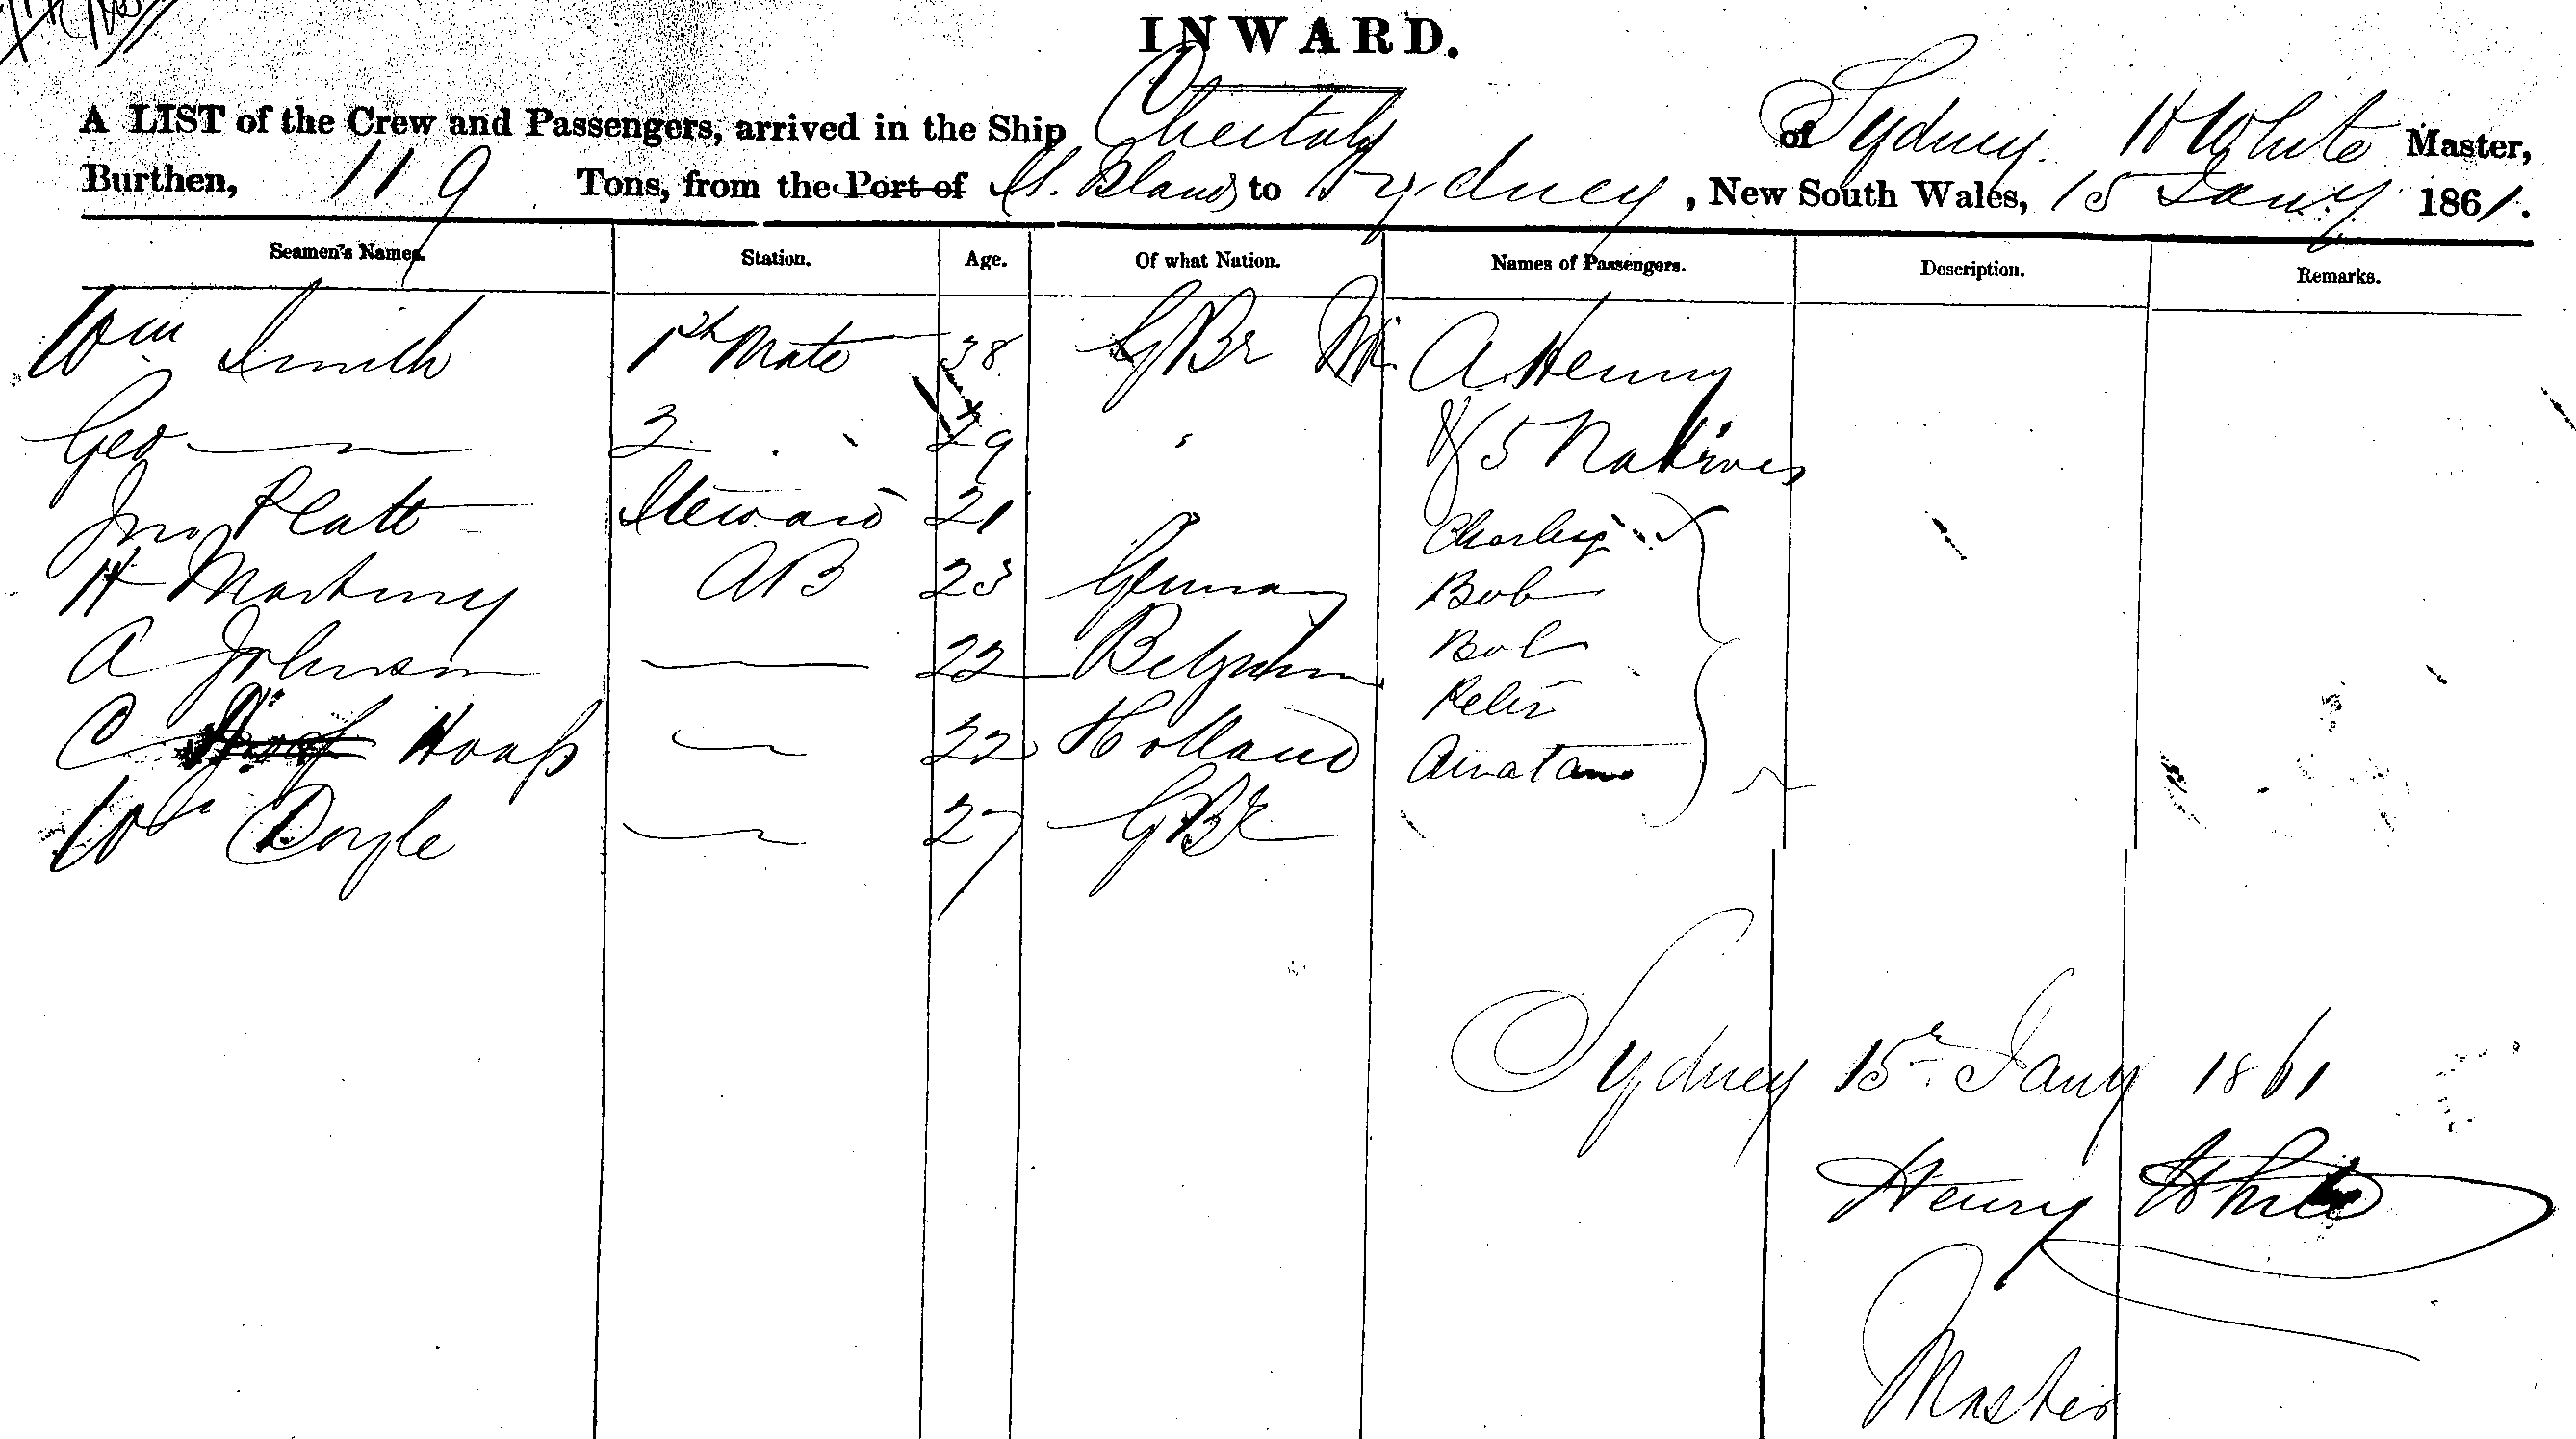 INWARD.
A LIST of the Crew and Passengers, arrived in the Ship of Sydney. H White Master,
Burthen, 119 Tons, from the Port of to Sydney, New South Wales, 15 Jany 1861.
Seamen's Names. Station. Age. Of what Nation. Names of Passengers. Description. Remarks.
Wm Smith 1st Mate 38 G Br Mr A Henry
Geo — 2 " 29 " & 5 Natives
Jno Platt Steward 21 Charley
H AB 23 German Bob
A Johnson — 22 Belgium Bob
C — 22 Holland Peter
Wm Doyle — 27 G Br
Sydney 15 Jany 1861
Henry White
Master